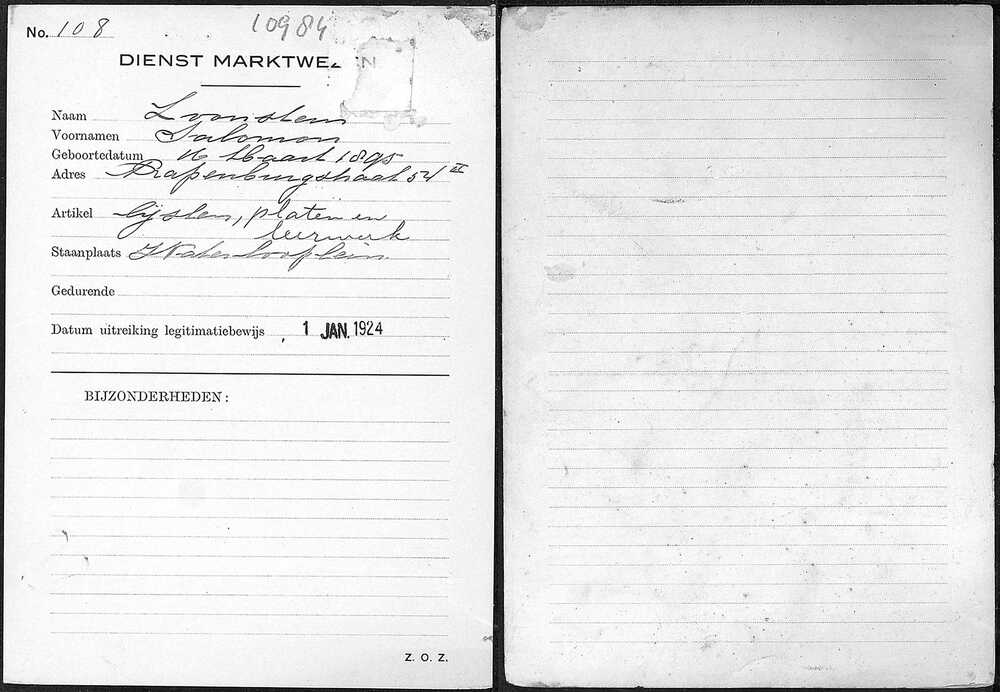 No. 108
10984
DIENST MARKTWEZEN
Naam Loonstein
Voornamen Salomon
Geboortedatum 16 Maart 1895
Adres Rapenburgstraat 54 II
Artikel lijsten, platen en
leerwerk
Staanplaats Waterlooplein
Gedurende
Datum uitreiking legitimatiebewijs 1 JAN. 1924
BIJZONDERHEDEN:
Z. O. Z.